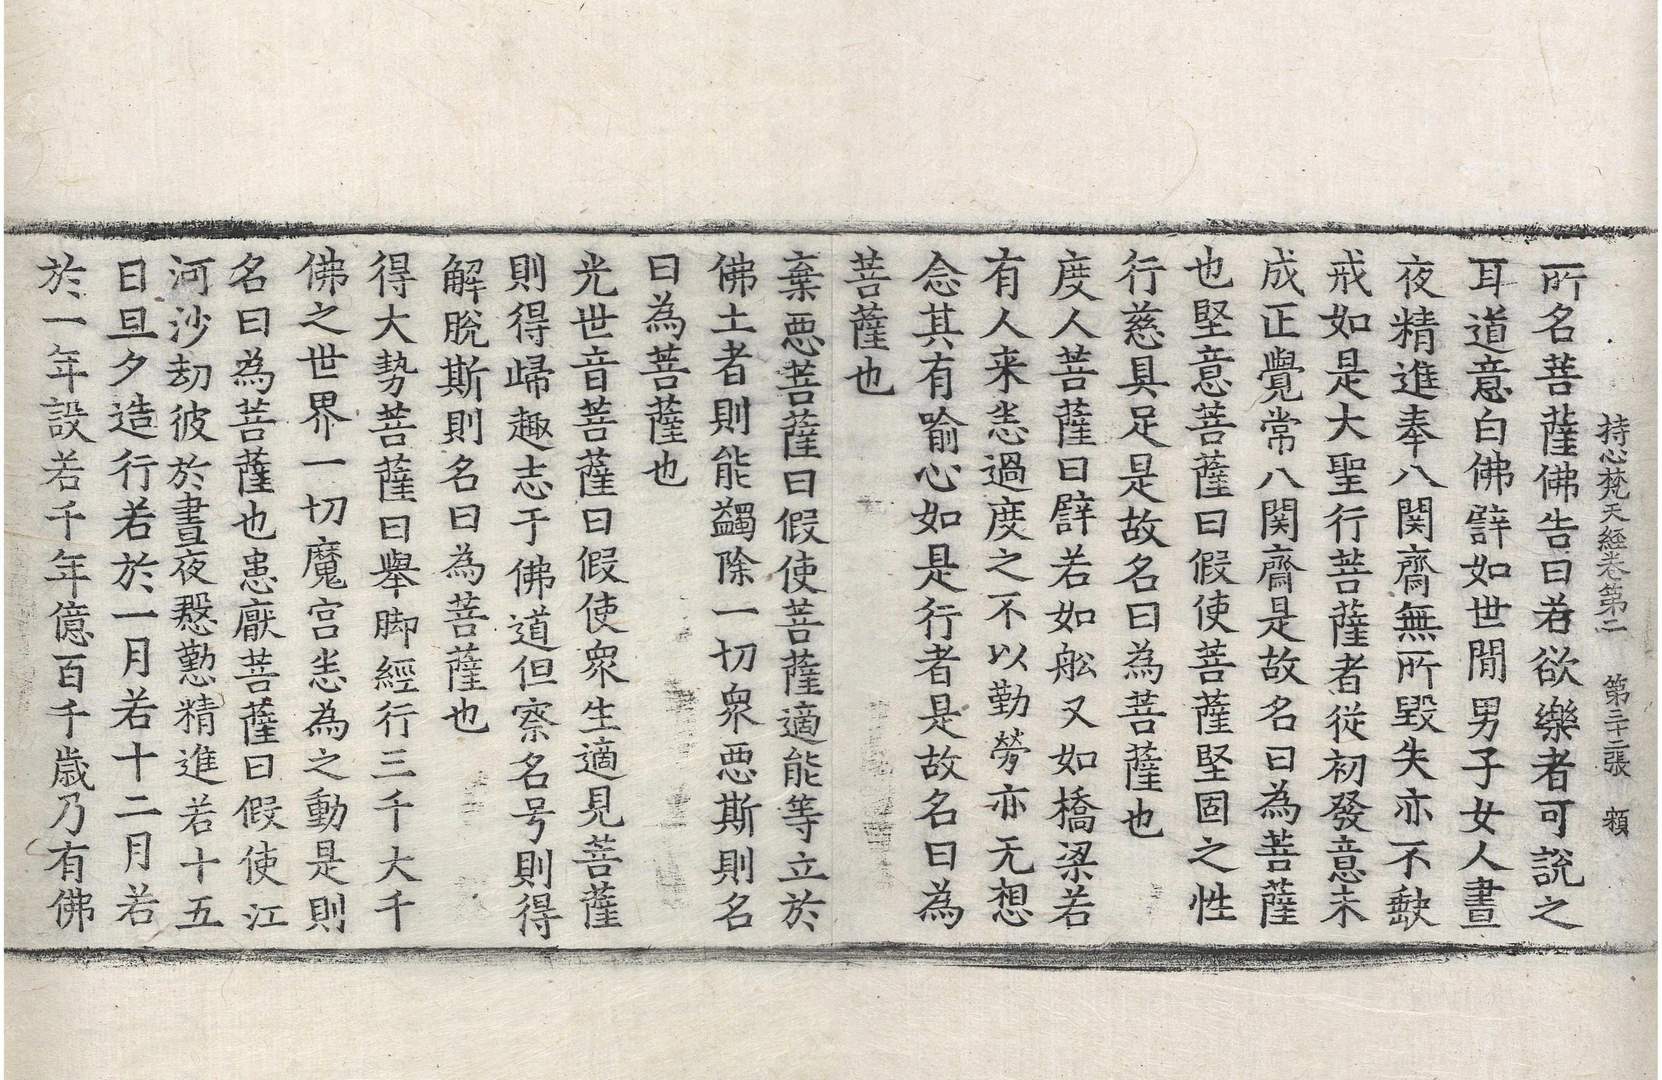 持心梵天經卷第二 第三十二張 頛
所名菩薩佛告曰若欲樂者可說之
耳道意白佛譬如世間男子女人晝
夜精進奉八関齋無所毀失亦不缺
戒如是大聖行菩薩者從初發意未
成正覺常八関齋是故名曰為菩薩
也堅意菩薩曰假使菩薩堅固之性
行慈具足是故名曰為菩薩也
度人菩薩曰譬若如舩又如橋梁若
有人来恙過度之不以勤勞亦无想
念其有喻心如是行者是故名曰為
菩薩也
棄惡菩薩曰假使菩薩適能等立於
佛土者則能蠲除一切衆惡斯則名
曰為菩薩也
光世音菩薩曰假使衆生適見菩薩
則得歸趣志于佛道但察名号則得
解脫斯則名曰為菩薩也
得大勢菩薩曰舉脚經行三千大千
佛之世界一切魔宫恙為之動是則
名曰為菩薩也患厭菩薩曰假使江
河沙劫彼於晝夜慇懃精進若十五
日旦夕造行若於一月若十二月若
於一年設若千年億百千歲乃有佛